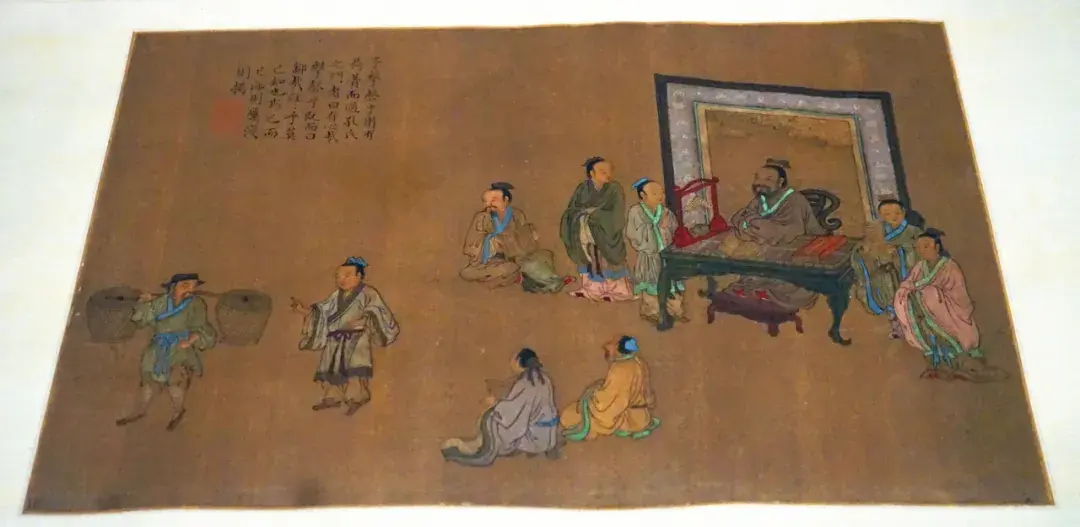 子擊磬于衛有
荷蕢而過孔氏
之門者曰有心哉
擊磬乎既而曰
鄙哉硜乎莫
己知也斯已而
已深則厲淺
則揭